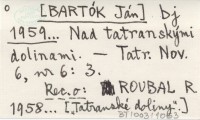 [BARTÓK Ján] bj
1959... Nad tatranskými
dolinami. — Tatr. Nov.
6, nº 6: 3.
Rec. o: ROUBAL R.
1958... ["Tatranské doliny".]